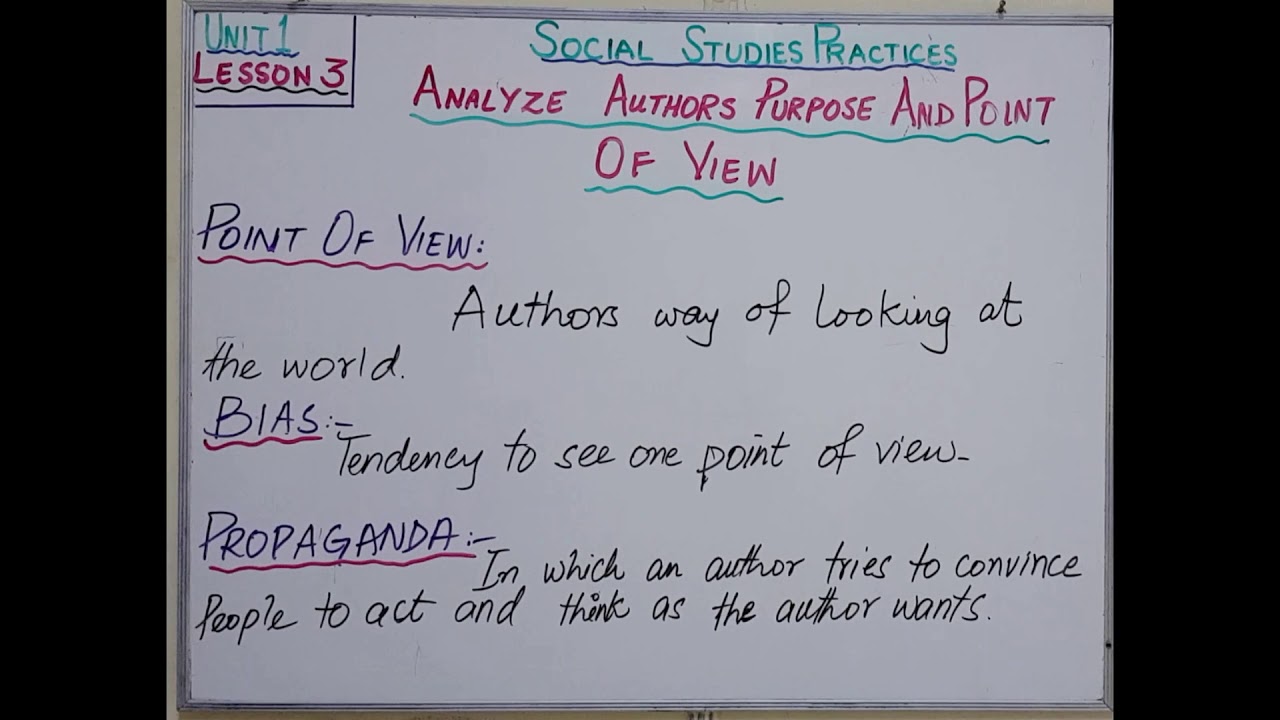 UNIT 1
LESSON 3
SOCIAL STUDIES PRACTICES
ANALYZE AUTHORS PURPOSE AND POINT
OF VIEW
POINT OF VIEW:
Authors way of looking at
the world.
BIAS:-
Tendency to see one point of view-
PROPAGANDA:-
In which an author tries to convince
People to act and think as the author wants.